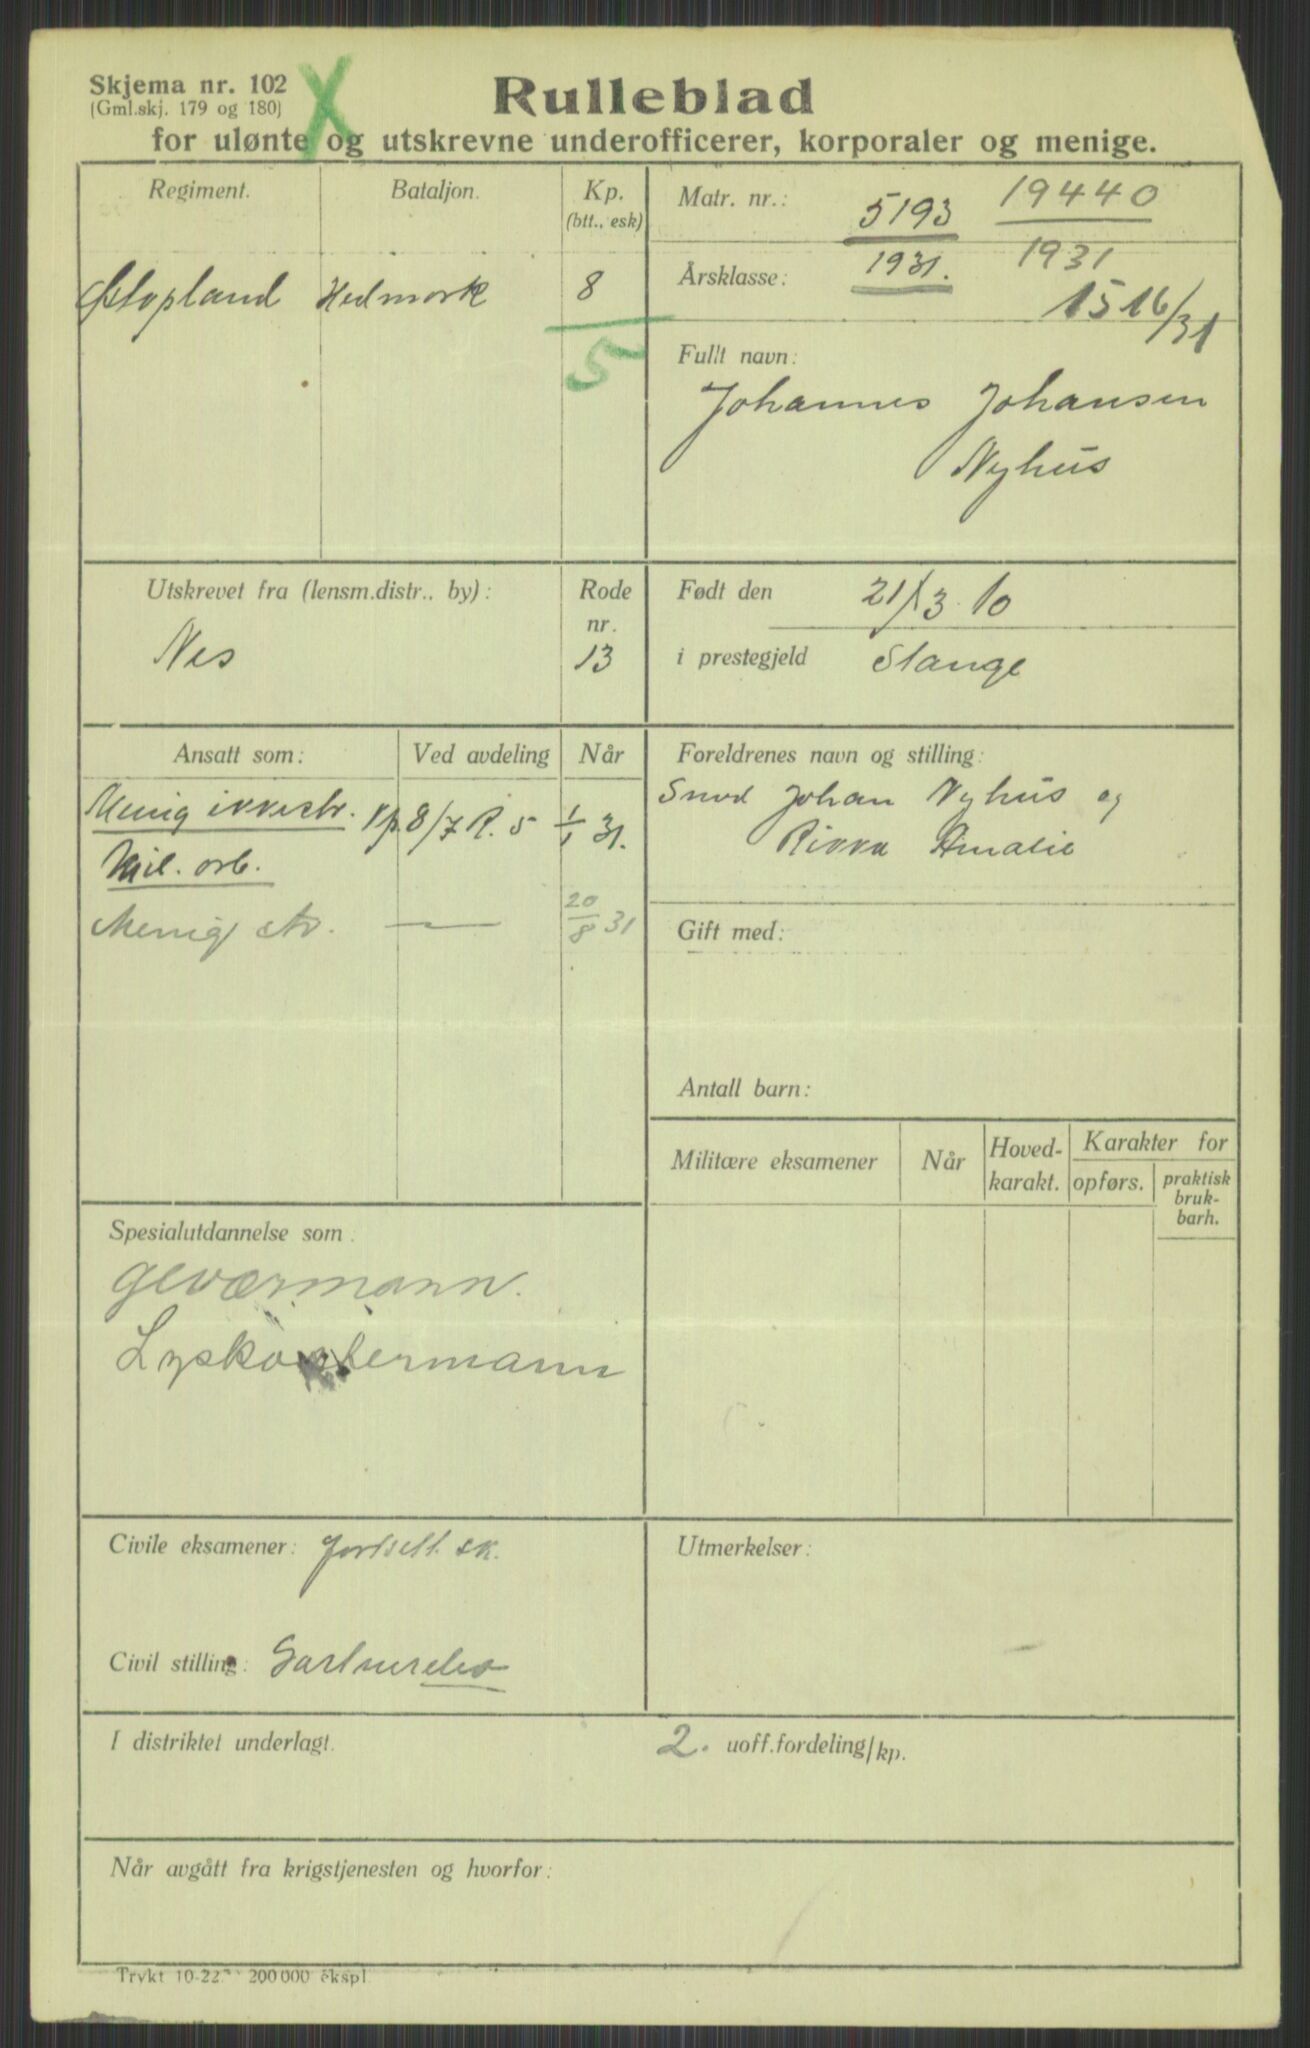 Skjema nr. 102
(Gml.skj. 179 og 180)
X
Rulleblad
for ulønte og utskrevne underofficerer, korporaler og menige.
Regiment. Bataljon. Kp.
(btt., esk)
Østopland Hedmark 8
5
Matr. nr.: 5193 19440
Årsklasse: 1931. 1931
1516/31
Fullt navn:
Johannes Johansen
Nyhus
Utskrevet fra (lensm.distr., by): Rode
nr.
Nes 13
Født den 21/3 10
i prestegjeld Stange
Ansatt som: Ved avdeling Når
Menig ikkestr. Kp. 8/7 R. 5 1/1 31.
Mil. arb.
Menig str. — 20/8 31
Foreldrenes navn og stilling:
Smed Johan Nyhus og
Rikka Amalie
Gift med:
Antall barn:
Militære eksamener Når Hoved-
karakt. Karakter for
opførs. praktisk
bruk-
barh.
Spesialutdannelse som:
Geværmann.
Lyskastermann
Civile eksamener: fortsett. sk.
Civil stilling: Gartnerelev
Utmerkelser:
I distriktet underlagt. 2. uoff.fordeling/kp.
Når avgått fra krigstjenesten og hvorfor:
Trykt 10-22. 200 000 ekspl.